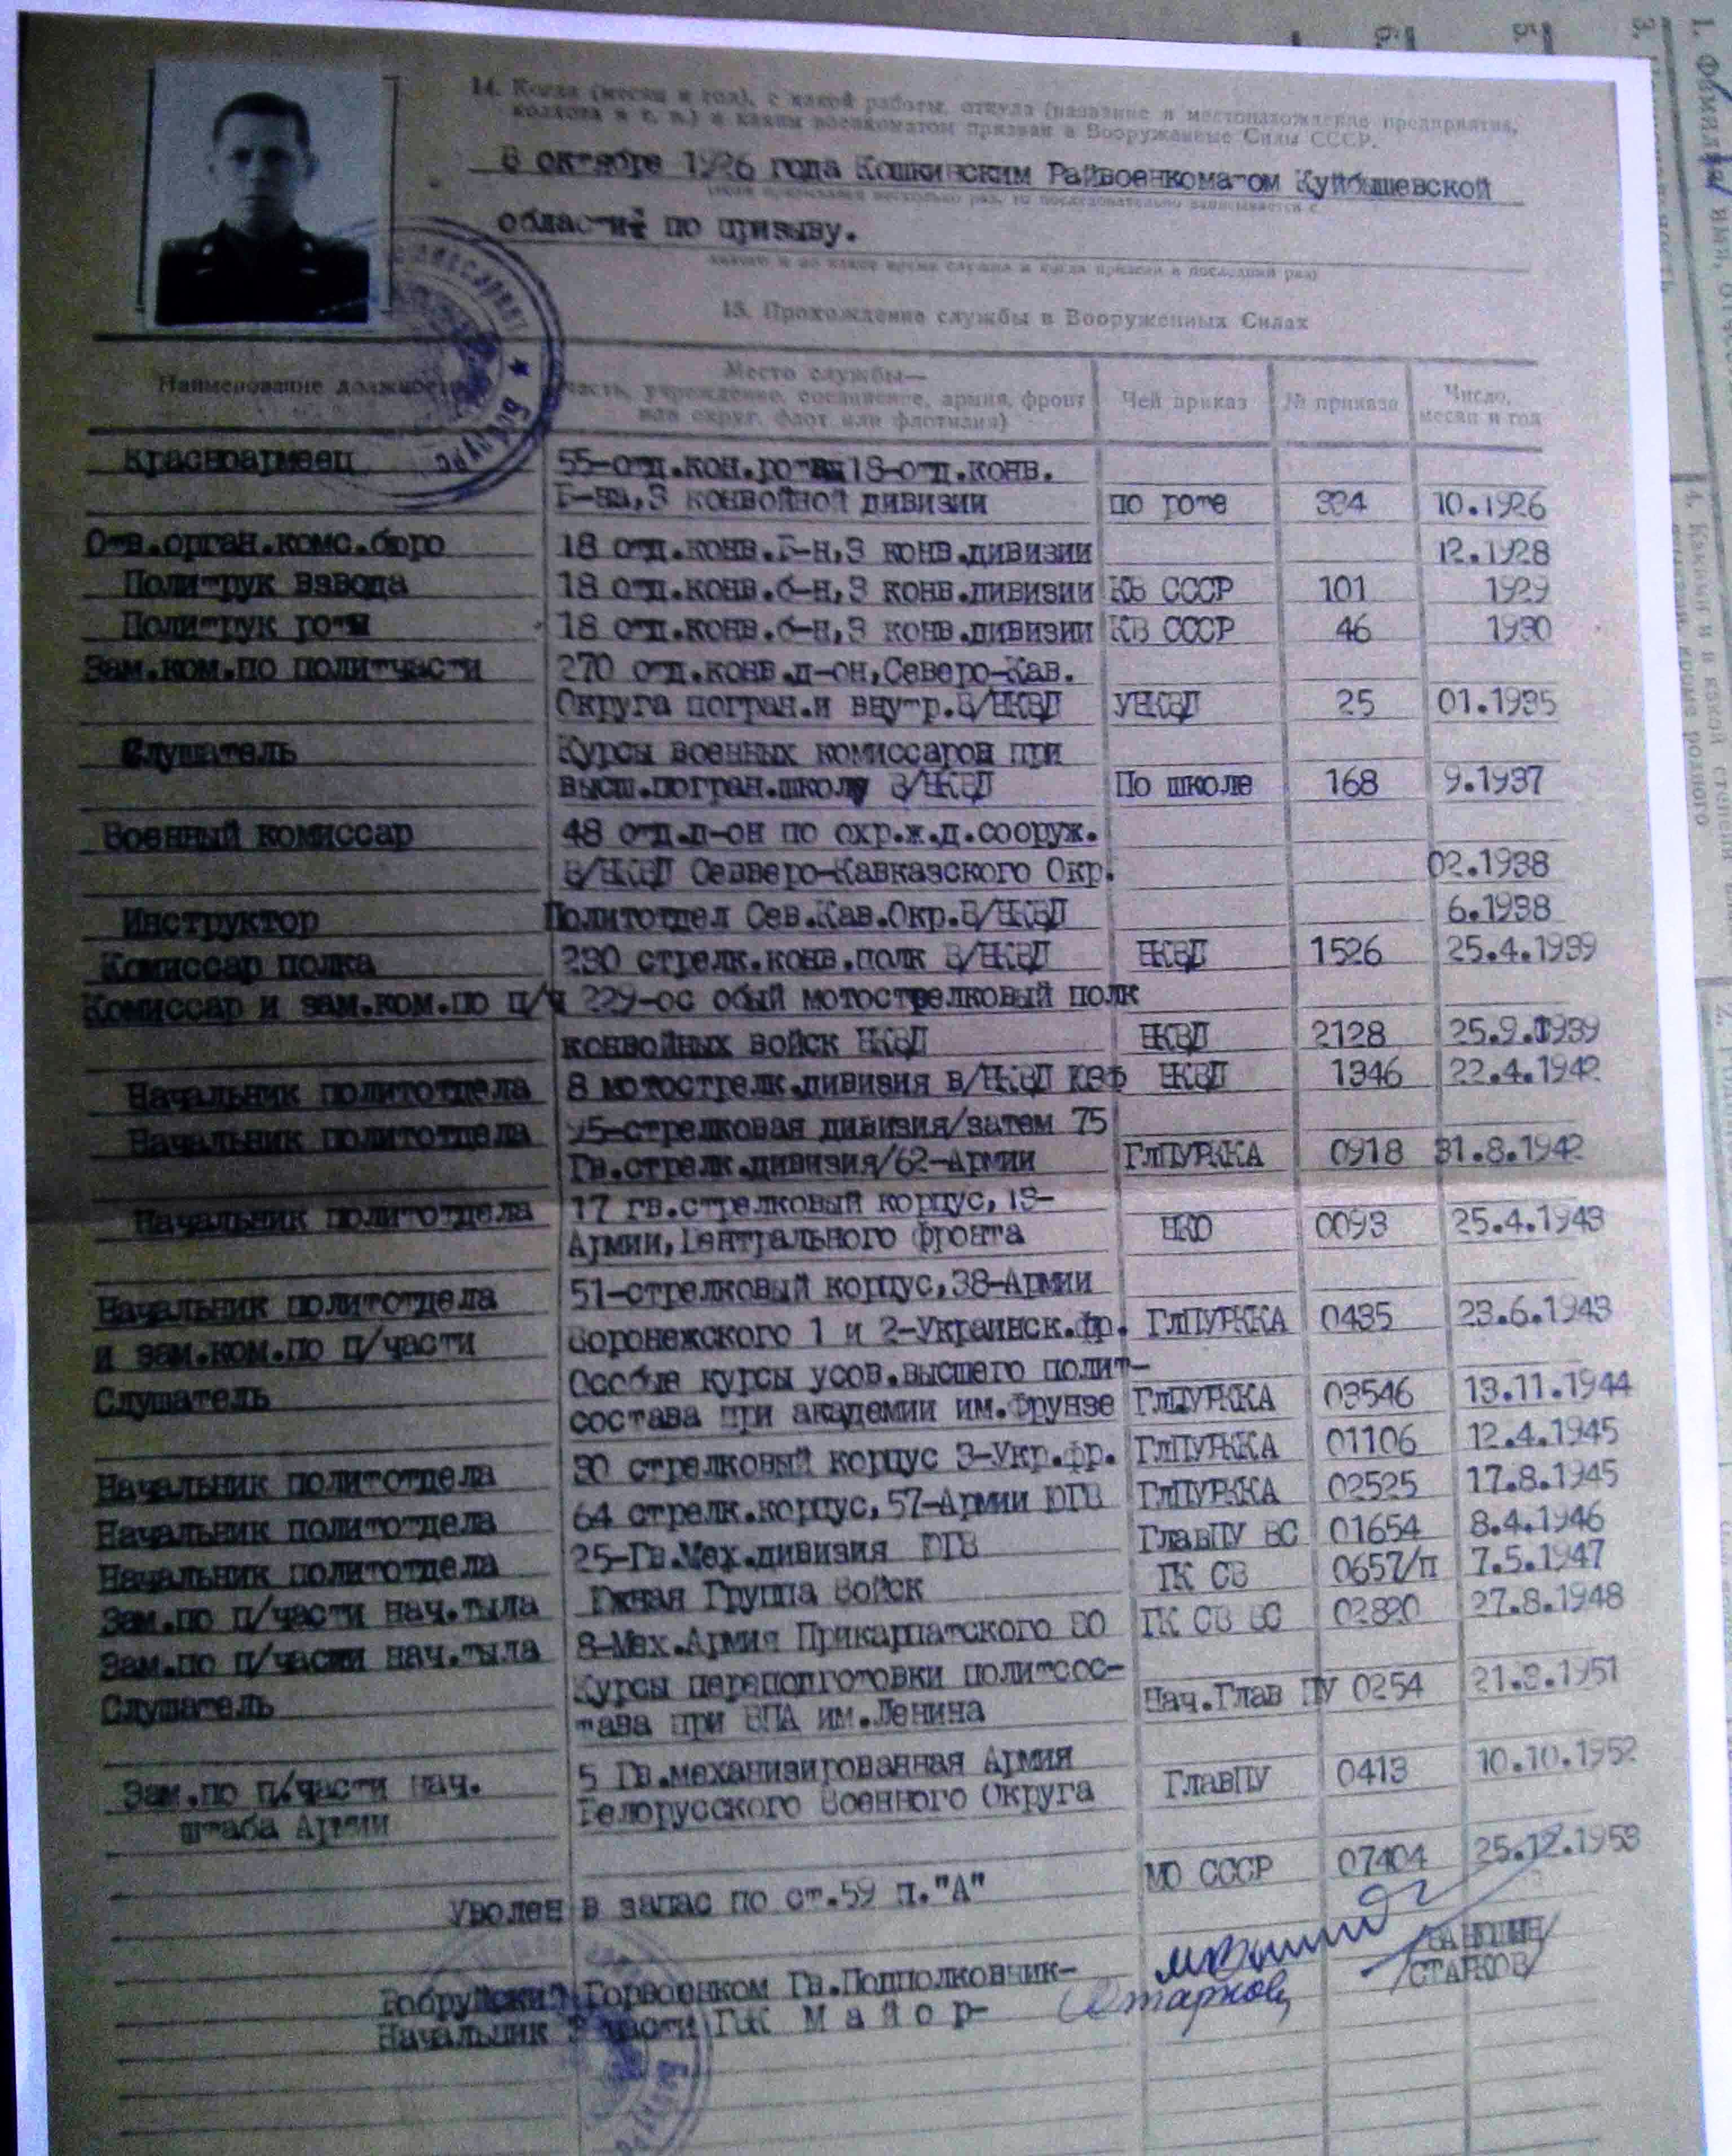 14. Когда (месяц и год), с какой работы, откуда (название и местонахождение предприятия,
колхоза и т. п.) и каким военкоматом призван в Вооруженные Силы СССР.
В октябре 1926 года Кошкинским Райвоенкоматом Куйбышевской
области по призыву.
15. Прохождение службы в Вооруженных Силах
Наименование должности
Место службы—
часть, учреждение, соединение, армия, фронт
или округ, флот или флотилия)
Чей приказ
№ приказа
Число,
месяц и год
Красноармеец 55-отд.кон.роты 18-отд.конв.
Б-на,3 конвойной дивизии по роте 334 10.1926
Отв.орган.комс.бюро 18 отд.конв.Б-н,3 конв.дивизии 12.1928
Политрук взвода 18 отд.конв.б-н,3 конв.дивизии КВ СССР 101 1929
Политрук роты 18 отд.конв.б-н,3 конв.дивизии КВ СССР 46 1930
Зам.ком.по политчасти 270 отд.конв.д-он,Северо-Кав.
Округа погран.и внутр.В/НКВД УНКВД 25 01.1935
Слушатель Курсы военных комиссаров при
высш.погран.школу В/НКВД По школе 168 9.1937
Военный комиссар 48 отд.д-он по охр.ж.д.сооруж.
В/НКВД Северо-Кавказского Окр. 02.1938
Инструктор Политотдел Сев.Кав.Окр.В/НКВД 6.1938
Комиссар полка 230 стрелк.конв.полк В/НКВД НКВД 1526 25.4.1939
Комиссар и зам.ком.по п/ч 229-ос обый мотострелковый полк
конвойных войск НКВД НКВД 2128 25.9.1939
Начальник политотдела 8 мотострелк.дивизия в/НКВД ЮЗФ НКВД 1346 22.4.1942
Начальник политотдела 95-стрелковая дивизия/затем 75
Гв.стрелк.дивизия/62-Армии ГлПУРККА 0918 31.8.1942
Начальник политотдела 17 гв.стрелковый корпус,13-
Армии,Центрального фронта НКО 0093 25.4.1943
Начальник политотдела 51-стрелковый корпус,38-Армии
и зам.ком.по п/части Воронежского 1 и 2-Украинск.фр. ГлПУРККА 0435 23.6.1943
Слушатель Особые курсы усов.высшего полит-
состава при академии им.Фрунзе ГлПУРККА 03546 13.11.1944
Начальник политотдела 30 стрелковый корпус 3-Укр.фр. ГлПУРККА 01106 12.4.1945
Начальник политотдела 64 стрелк.корпус,57-Армии ЮГВ ГлПУРККА 02525 17.8.1945
Начальник политотдела 25-Гв.Мех.дивизия ЮГВ ГлавПУ ВС 01654 8.4.1946
Зам.по п/части нач.тыла Южная Группа Войск ГК СВ 0657/п 7.5.1947
Зам.по п/части нач.тыла 8-Мех.Армия Прикарпатского ВО ГК СВ ВС 02820 27.8.1948
Слушатель Курсы переподготовки политсос-
тава при ВПА им.Ленина Нач.Глав ПУ 0254 1951
Зам.по п/части нач. 5 Гв.механизированная Армия
штаба Армии Белорусского Военного Округа ГлавПУ 0413 10.10.1952
Уволен в запас по ст.59 п."А" МО СССР 07404 25.12.1953
Бобруйский Горвоенком Гв.Подполковник-
Начальник части ГВК Майор- Старков /СТАРКОВ/